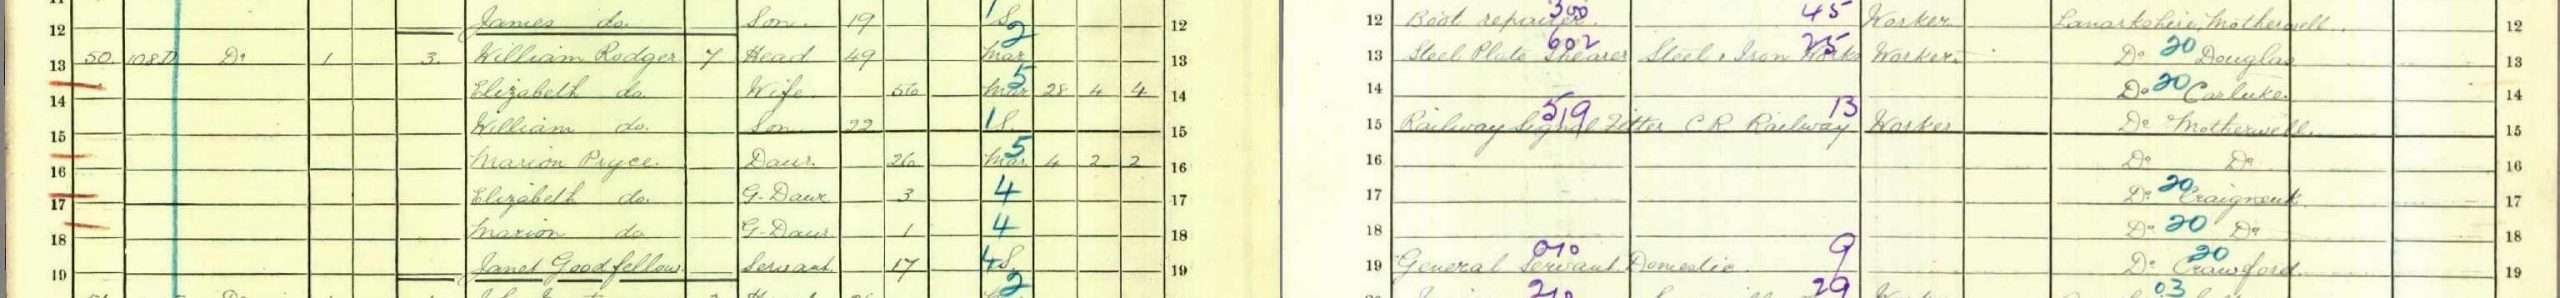 12 James do. Son. 19 1 S 12 12 Boot repairer. 300 45 Worker Lanarkshire, Motherwell. 12
13 50. 108D Do 1 3. William Rodger 7 Head 49 2 Mar 13 13 Steel Plate Shearer 602 Steel & Iron Works 25 Worker. Do 20 Douglas 13
14 Elizabeth do. Wife. 50 5 Mar 28 4 4 14 14 Do 20 Carluke. 14
15 William do. Son. 22 1 S. 15 15 Railway Signal Fitter 519 C R Railway 13 Worker Do Motherwell. 15
16 Marion Pryce. Daur. 26 5 Mar. 4 2 2 16 16 Do Do 16
17 Elizabeth do. G-Daur 3 4 17 17 Do 20 Craigneuk. 17
18 Marion do G-Daur. 1 4 18 18 Do 20 Do 18
19 Janet Goodfellow. Servant. 17 4 S. 19 19 General Servant Domestic. 9 Do 20 Crawford. 19
2 210 29 03